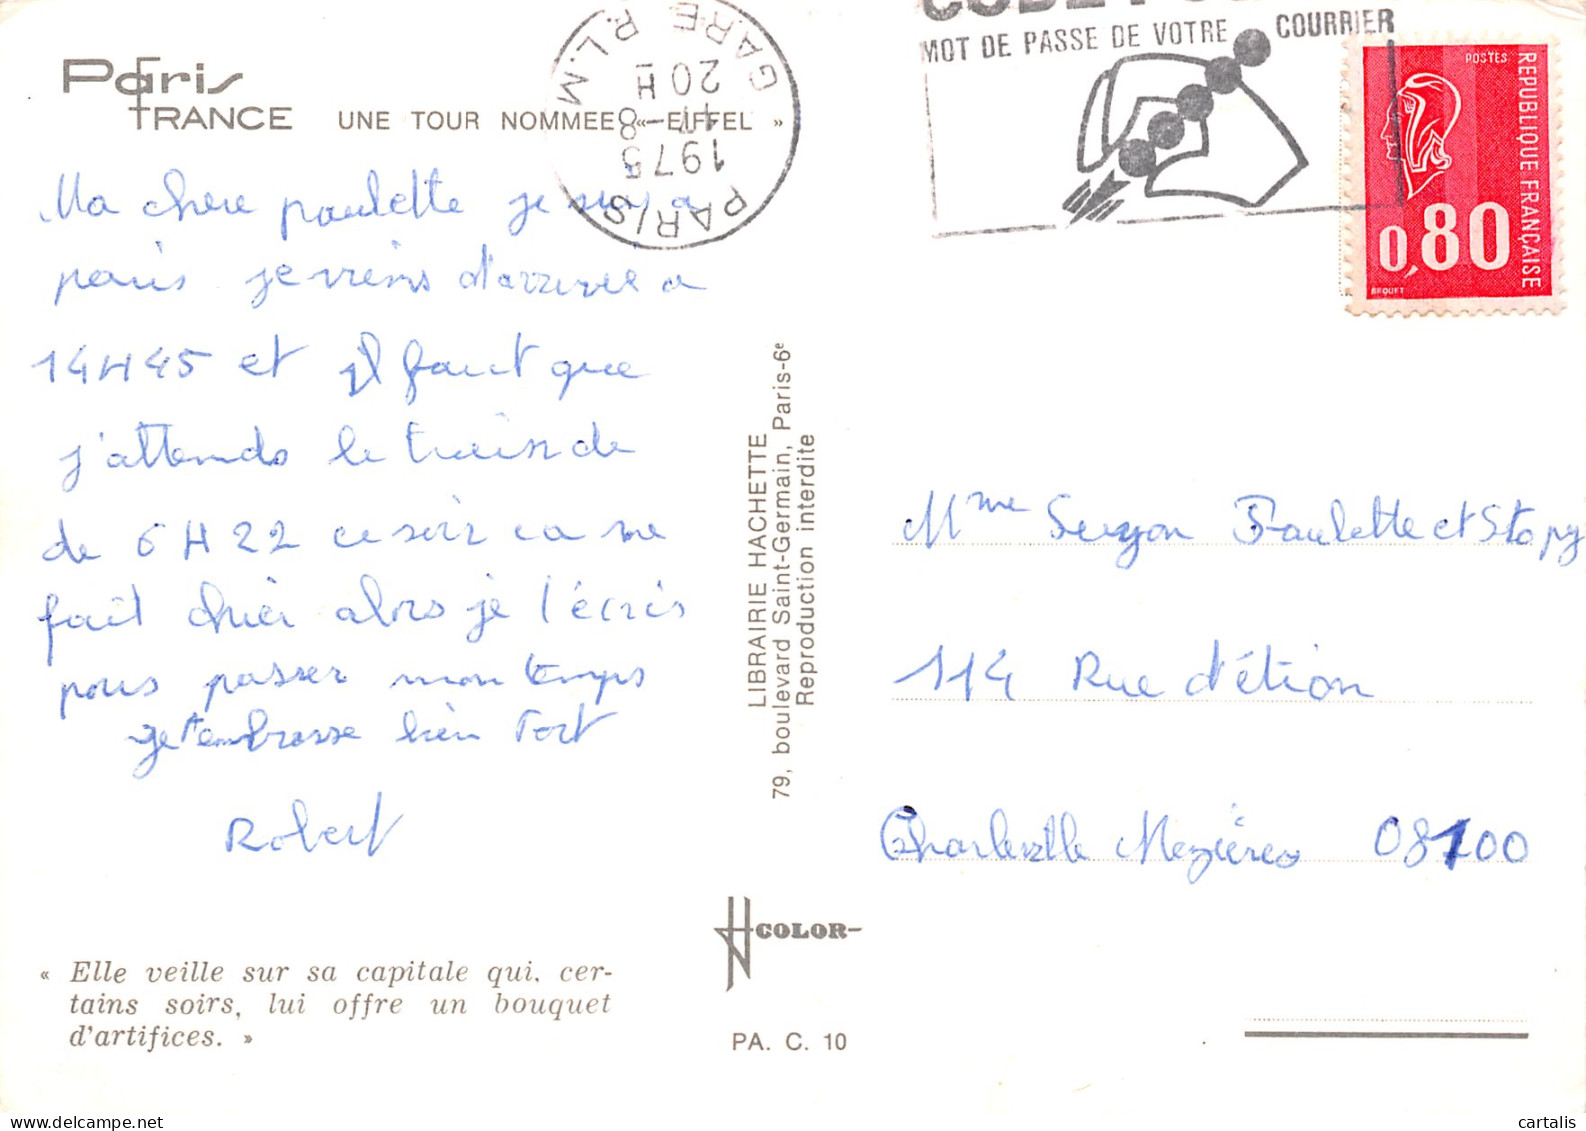 Paris
FRANCE UNE TOUR NOMMEE « EIFFEL »
Ma chere paulette je suis a
paris je viens d'arriver a
14H45 et il faut que
j'attends le train de
de 6H22 ce soir ca me
fait chier alors je t'écris
pour passer mon temps
je t'embrasse bien fort
Robert
« Elle veille sur sa capitale qui, cer-
tains soirs, lui offre un bouquet
d'artifices. »
PARIS GARE P.L.M
20H
4-8
1975
MOT DE PASSE DE VOTRE COURRIER
POSTES
REPUBLIQUE FRANÇAISE
0,80
BEQUET
LIBRAIRIE HACHETTE
79, boulevard Saint-Germain, Paris-6e
Reproduction interdite
Mme Suzon Paulette et Stopy
114 Rue d'étion
Charleville Mezières 08100
COLOR
PA. C. 10
cartalis